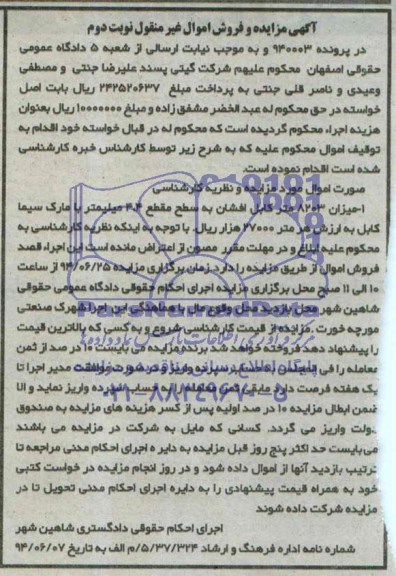 آگهی مزایده و فروش اموال غیر منقول نوبت دوم
در پرونده ۹۴۰۰۰۳ و به موجب نیابت ارسالی از شعبه ۵ دادگاه عمومی
حقوقی اصفهان محکوم علیهم شرکت گیتی پسند علیرضا جنتی و مصطفی
وعیدی و ناصر قلی جنتی به پرداخت مبلغ ۲۴۲۵۲۰۶۳۷ ریال بابت اصل
خواسته در حق محکوم له عبد الخضر مشفق زاده و مبلغ ۱۰۰۰۰۰۰۰ ریال بعنوان
هزینه اجراء محکوم گردیده است که محکوم له در قبال خواسته خود اقدام به
توقیف اموال محکوم علیه که به شرح زیر توسط کارشناس خبره کارشناسی
شده است اقدام نموده است.
صورت اموال مورد مزایده و نظریه کارشناسی
۱-میزان ۸۲۰۳ متر کابل افشان به سطح مقطع ۴*۴ میلیمتر با مارک سیما
کابل به ارزش هر متر ۲۷۰۰۰ هزار ریال. با توجه به اینکه نظریه کارشناسی به
محکوم علیه ابلاغ و در مهلت مقرر مصون از اعتراض مانده است این اجراء قصد
فروش اموال از طریق مزایده را دارد.زمان برگزاری مزایده ۹۴/۰۶/۲۵ از ساعت
۱۰ الی ۱۱ صبح محل برگزاری مزایده اجرای احکام حقوقی دادگاه عمومی حقوقی
شاهین شهر محل بازدید محل وقوع مال با هماهنگی این اجرا شهرک صنعتی
مورچه خورت .مزایده از قیمت کارشناسی شروع و به کسی که بالاترین قیمت
را پیشنهاد دهد فروخته خواهد شد برنده مزایده می بایست ۱۰ در صد از ثمن
معامله را فی المجلس به حساب سپرده واریز و در صورت موافقت مدیر اجرا تا
یک هفته فرصت دارد مابقی ثمن معامله را به حساب سپرده واریز نماید و الا
ضمن ابطال مزایده ۱۰ در صد اولیه پس از کسر هزینه های مزایده به صندوق
دولت واریز می گردد. کسانی که مایل به شرکت در مزایده می باشند
می‌بایست حد اکثر پنج روز قبل مزایده به دایر ه اجرای احکام مدنی مراجعه تا
ترتیب بازدید آنها از اموال داده شود و در روز انجام مزایده در خواست کتبی
خود به همراه قیمت پیشنهادی را به دایره اجرای احکام مدنی تحویل تا در
مزایده شرکت داده شوند
اجرای احکام حقوقی دادگستری شاهین شهر
شماره نامه اداره فرهنگ و ارشاد ۵/۳۷/۳۲۴/م الف به تاریخ ۹۴/۰۶/۰۷